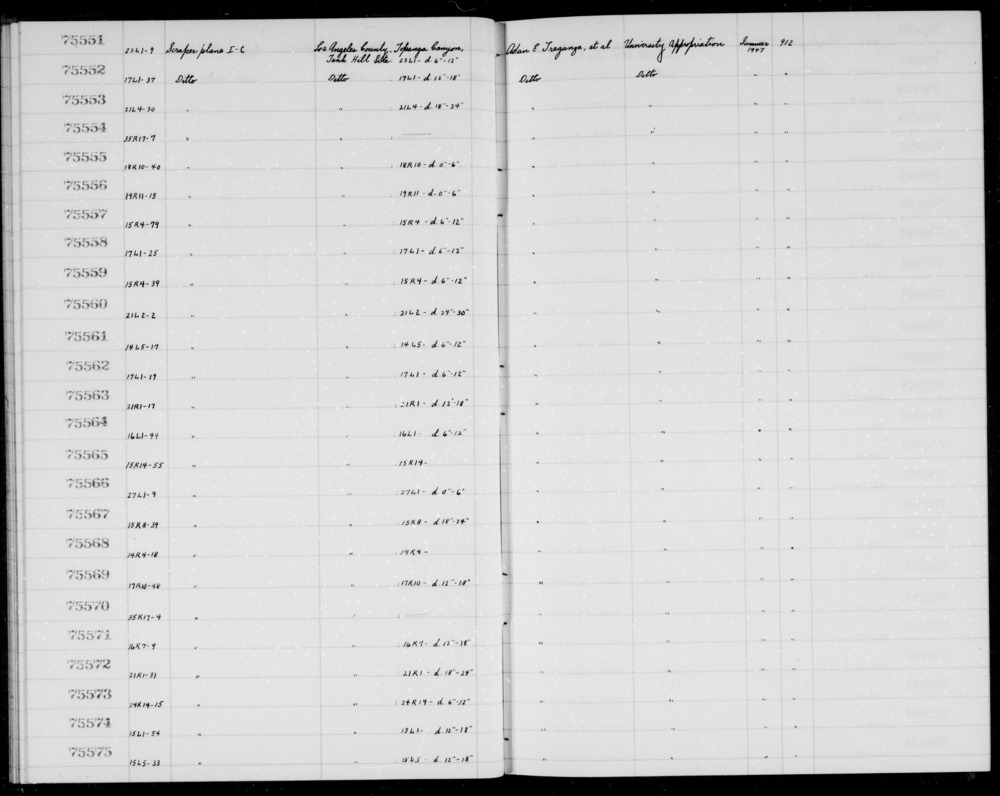 75551 23L1-9 Scraper plane I-C Los Angeles County, Topanga Canyon, Adan E. Treganza, et al University Appropriation Summer 1947 912
Tank Hill Site 23L1- d 6"-12"
75552 17L1-37 Ditto Ditto 17L1- d 12"-18" Ditto Ditto " "
75553 21L4-30 " " 21L4- d 18"-24" " " " "
75554 35R17-7 " " —— " " " "
75555 18R10-40 " " 18R10- d 0"-6" " " " "
75556 19R11-15 " " 19R11- d. 0"-6" " " " "
75557 15R4-79 " " 15R4- d. 6"-12" " " " "
75558 17L1-25 " " 17L1- d 6"-12" " " " "
75559 15R4-39 " " 15R4- d. 6"-12" " " " "
75560 21L2-2 " " 21L2- d 24"-30" " " " "
75561 14L5-17 " " 14L5- d 6"-12" " " " "
75562 17L1-19 " " 17L1- d 6"-12" " " " "
75563 21R1-17 " " 21R1- d 12"-18" " " " "
75564 16L1-44 " " 16L1- d 6"-12" " " " "
75565 15R14-55 " " 15R14- " " " "
75566 27L1-9 " " 27L1- d 0"-6" " " " "
75567 15R8-39 " " 15R8- d 18"-24" " " " "
75568 14R4-18 " " 14R4- " " " "
75569 17R10-48 " " 17R10- d. 12"-18" " " " "
75570 35R17-4 " " —— " " " "
75571 16R7-9 " " 16R7- d 12"-18" " " " "
75572 21R1-31 " " 21R1- d 18"-24" " " " "
75573 24R14-15 " " 24R14- d. 6"-12" " " " "
75574 15L1-54 " " 15L1- d. 12"-18" " " " "
75575 15L5-33 " " 15L5- d. 12"-18" " " " "